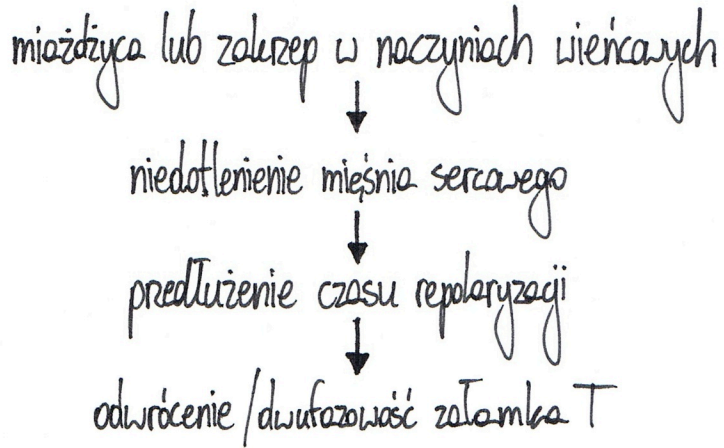 miażdżyca lub zakrzep w naczyniach wieńcowych
niedotlenienie mięśnia sercowego
przedłużenie czasu repolaryzacji
odwrócenie/dwufazowość załamka T